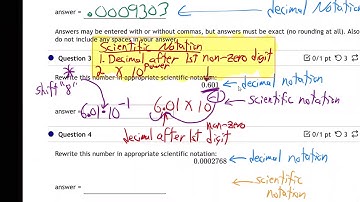 answer = .0009303 ← decimal Notation
Answers may be entered with or without commas, but answers must be exact (no rounding at all). Also
do not include any spaces in your answer.
Scientific Notation
1. Decimal after 1st non-zero digit
2 × 10 power
Question 3
0/1 pt 3
Rewrite this number in
notation:
0.601
decimal notation
* shift "8"
6.01*10^-1
6.01 × 10^-1
scientific notation
answer =
decimal after 1st non-zero digit
Question 4
0/1 pt 3
Rewrite this number in appropriate scientific notation:
0.0002768
← decimal notation
answer =
← scientific
notation